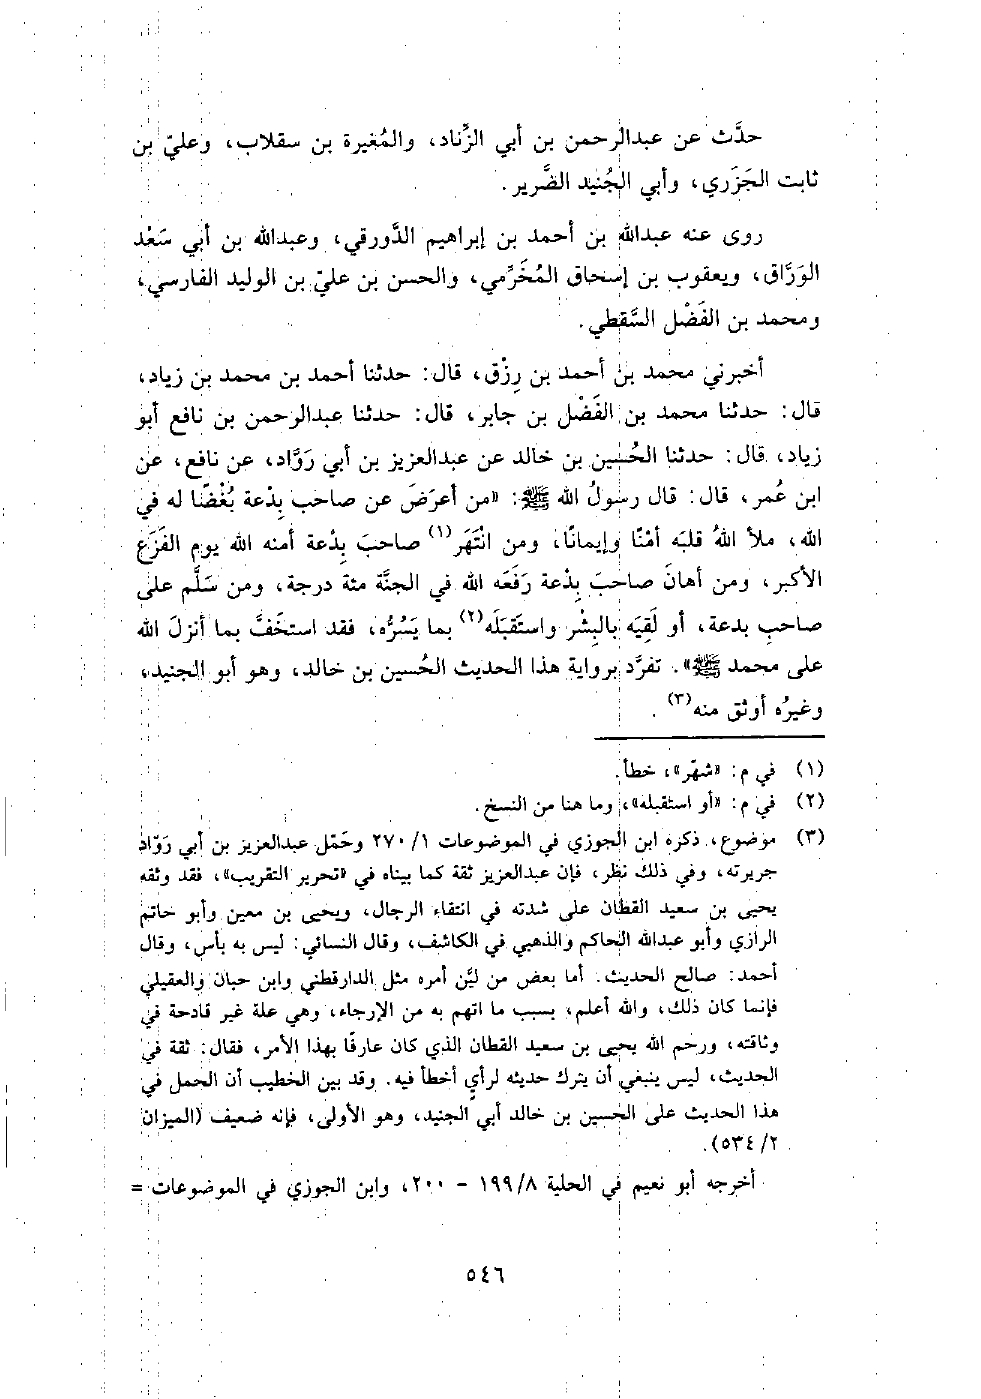 حدَّث عن عبدالرحمن بن أبي الزِّناد، والمُغيرة بن سقلاب، وعليّ بن
ثابت الجَزَري، وأبي الجُنيد الضَّرير.
روى عنه عبدالله بن أحمد بن إبراهيم الدَّورقي، وعبدالله بن أبي سَعْد
الوَرَّاق، ويعقوب بن إسحاق المُخَرِّمي، والحسن بن عليّ بن الوليد الفارسي،
ومحمد بن الفَضْل السَّقطي.
أخبرني محمد بن أحمد بن رِزْق، قال: حدثنا أحمد بن محمد بن زياد،
قال: حدثنا محمد بن الفَضْل بن جابر، قال: حدثنا عبدالرحمن بن نافع أبو
زياد، قال: حدثنا الحُسين بن خالد عن عبدالعزيز بن أبي رَوَّاد، عن نافع، عن
ابن عُمر، قال: قال رسولُ الله ﷺ: «من أعرَضَ عن صاحب بِدْعة بُغْضًا له في
الله، ملأ اللهُ قلبَه أمْنًا وإيمانًا، ومن انْتَهَر(١) صاحبَ بِدْعة أمنه الله يوم الفَزَع
الأكبر، ومن أهانَ صاحبَ بِدْعة رَفَعَه الله في الجنَّة مئة درجة، ومن سَلَّم على
صاحبِ بدعة، أو لَقِيَه بالبِشْر واستَقبَلَه(٢) بما يَسُرُّه، فقد استخَفَّ بما أنزلَ الله
على محمد ﷺ». تفرَّد برواية هذا الحديث الحُسين بن خالد، وهو أبو الجنيد،
وغيرُه أوثق منه(٣).
(١) في م: «شهّر»، خطأ.
(٢) في م: «أو استقبله»، وما هنا من النسخ.
(٣) موضوع، ذكره ابن الجوزي في الموضوعات ١/ ٢٧٠ وحَمّل عبدالعزيز بن أبي رَوّاد
جريرته، وفي ذلك نظر، فإن عبدالعزيز ثقة كما بيناه في «تحرير التقريب»، فقد وثقه
يحيى بن سعيد القطان على شدته في انتقاء الرجال، ويحيى بن معين وأبو حاتم
الرازي وأبو عبدالله الحاكم والذهبي في الكاشف، وقال النسائي: ليس به بأس، وقال
أحمد: صالح الحديث. أما بعض من ليَّن أمره مثل الدارقطني وابن حبان والعقيلي
فإنما كان ذلك، والله أعلم، بسبب ما اتهم به من الإرجاء، وهي علة غير قادحة في
وثاقته، ورحم الله يحيى بن سعيد القطان الذي كان عارفًا بهذا الأمر، فقال: ثقة في
الحديث، ليس ينبغي أن يترك حديثه لرأي أخطأ فيه. وقد بين الخطيب أن الحمل في
هذا الحديث على الحسين بن خالد أبي الجنيد، وهو الأولى، فإنه ضعيف (الميزان
٢/ ٥٣٤).
أخرجه أبو نعيم في الحلية ٨/ ١٩٩ - ٢٠٠، وابن الجوزي في الموضوعات =
٥٤٦